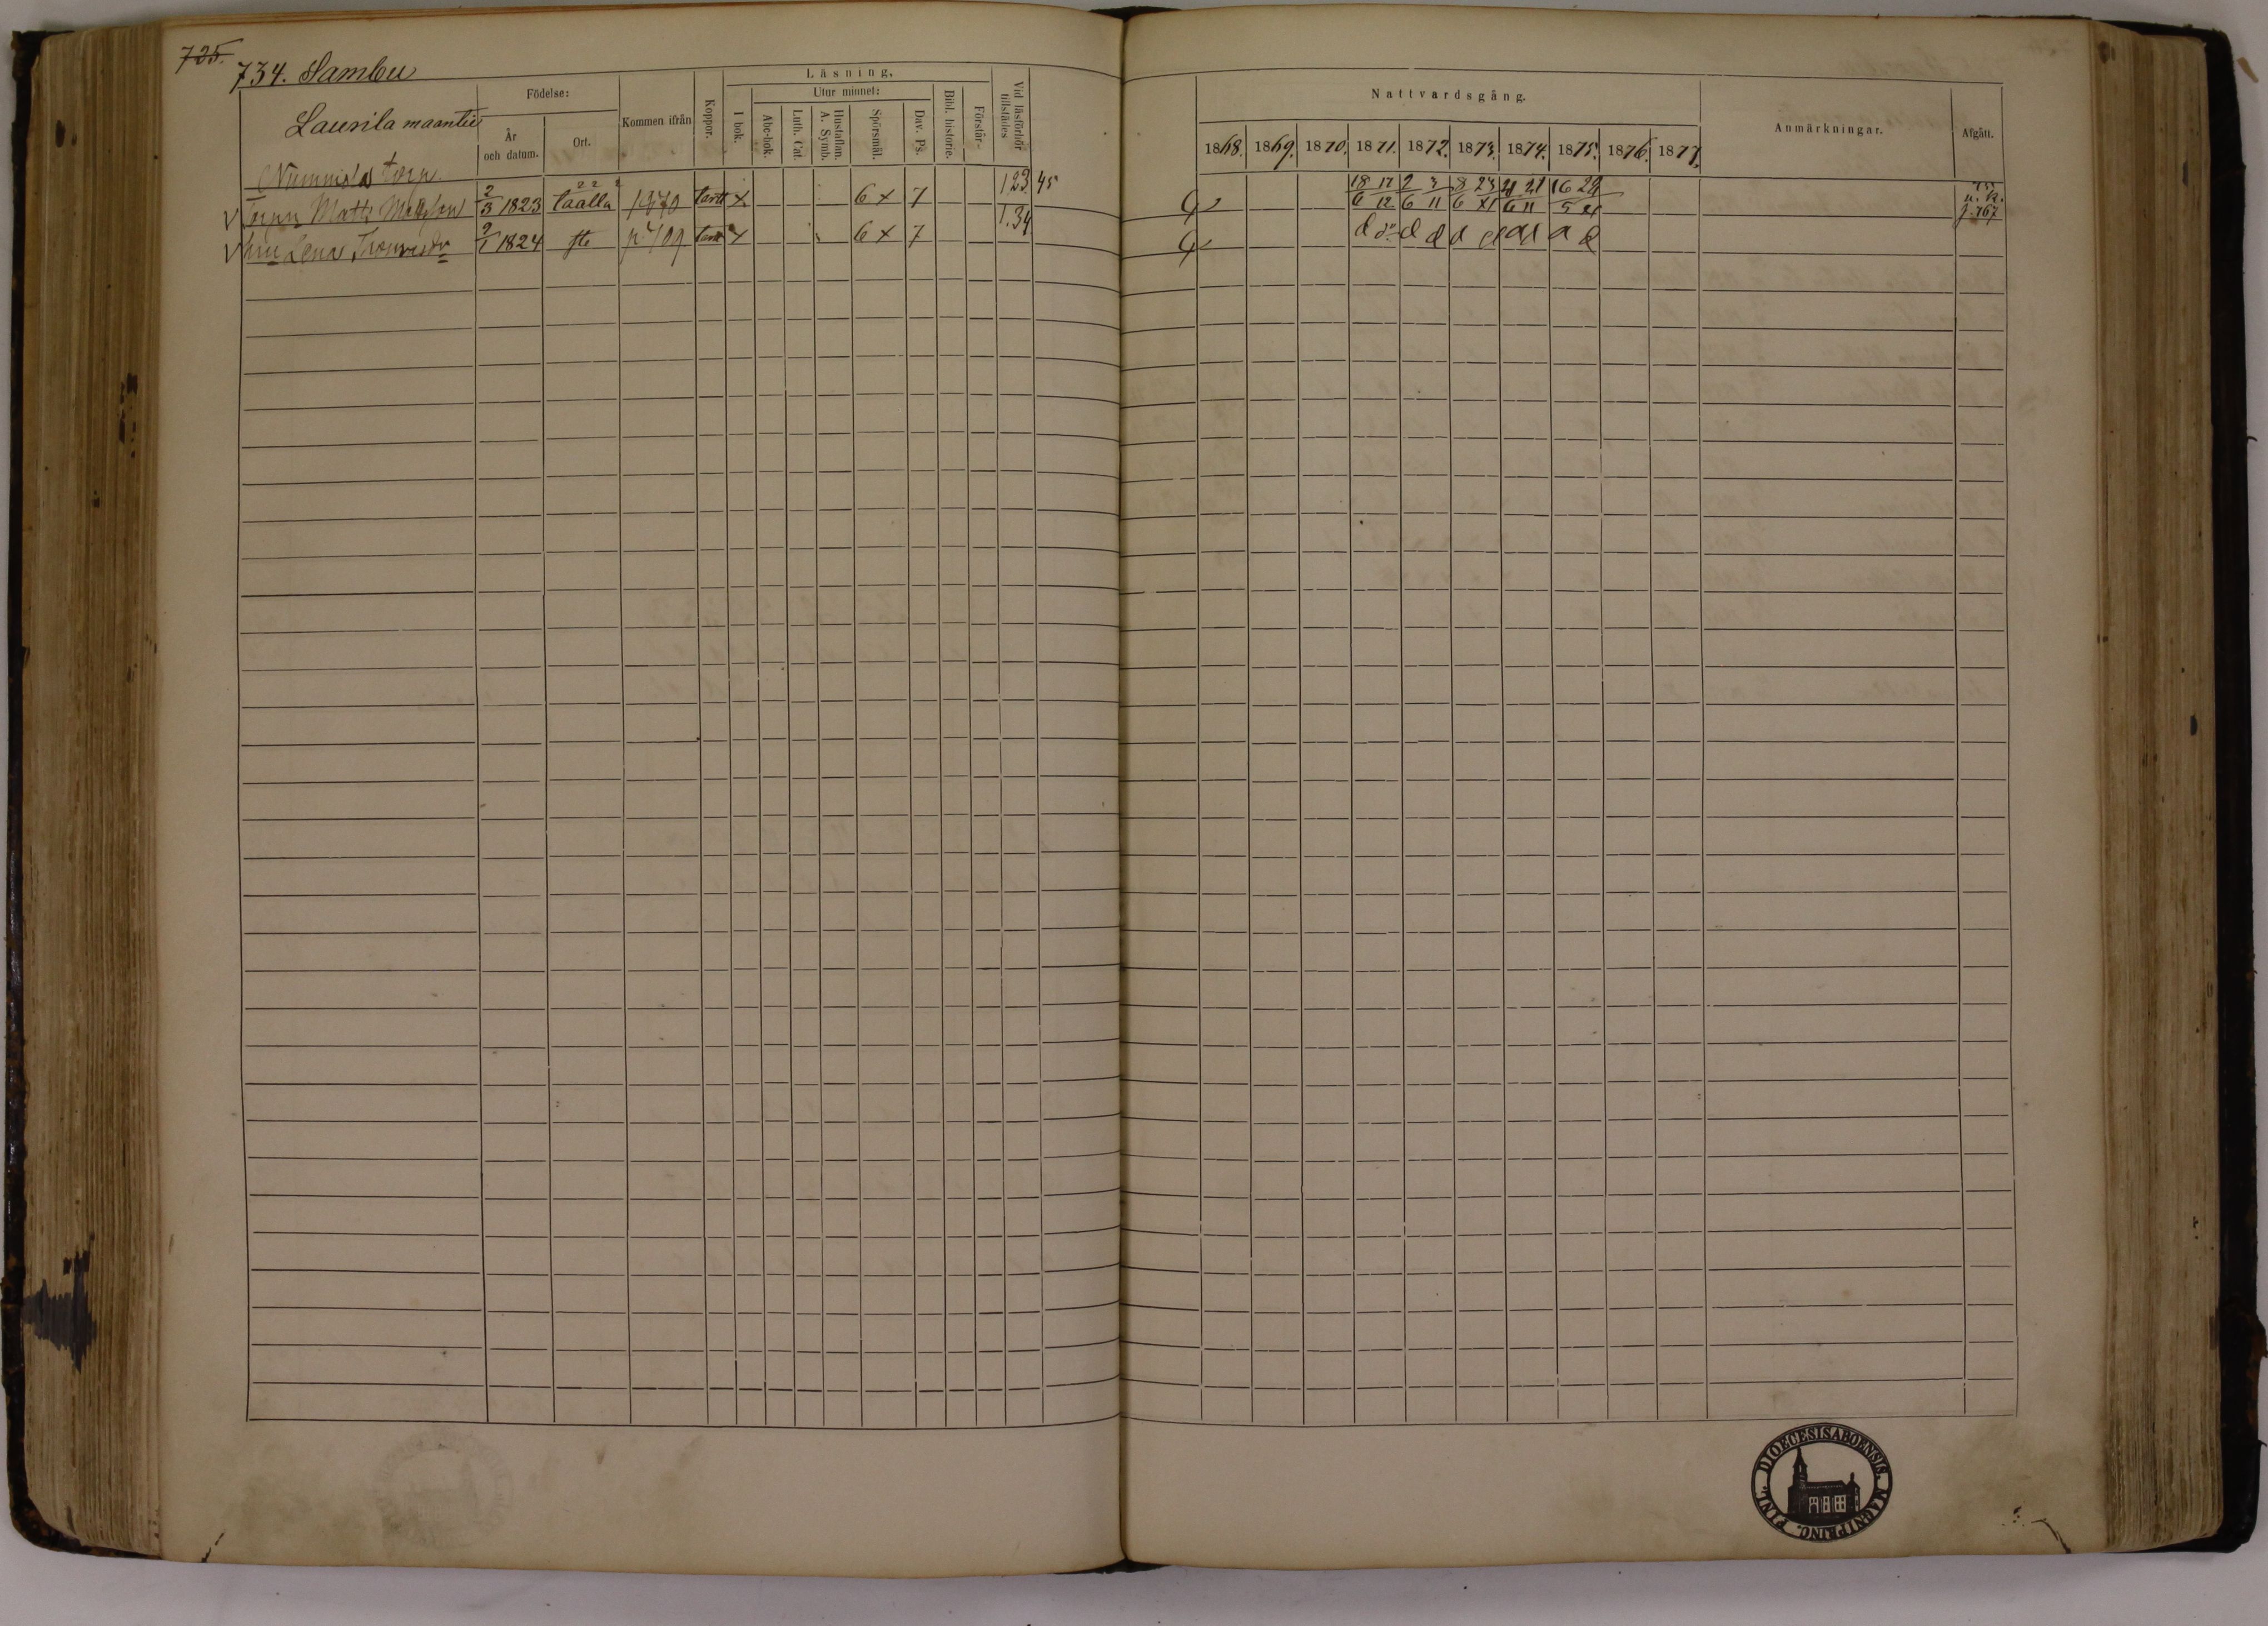 725.
734. Sambu
Laurila maantie
Födelse:
År och datum.
Ort.
Kommen ifrån
Koppor.
Läsning.
I bok.
Utur minnet:
Abc-bok.
Luth. Cat.
Hustaflan. A. Symb.
Spörsmål.
Dav. Ps.
Bibl. historie.
Förstår-
Vid läsförhör tillstädes
Nattvardsgång.
1868. 1869. 1870. 1871. 1872. 1873. 1874. 1875. 1876. 1877.
Anmärkningar.
Afgått.
Torp.
Matts 2/3 1823 1870 x 6 x 7 123 45 G 18/6 17/12 2/6 3/11 8/6 23/XI 21/6 21/11 16/5 p. 767
Lena 2/1 1824 p 709 x 6 x 7 1.34 G d d d d d d d d
DIOECESIS ABOENSIS. MAGNI PRINC. FINL.